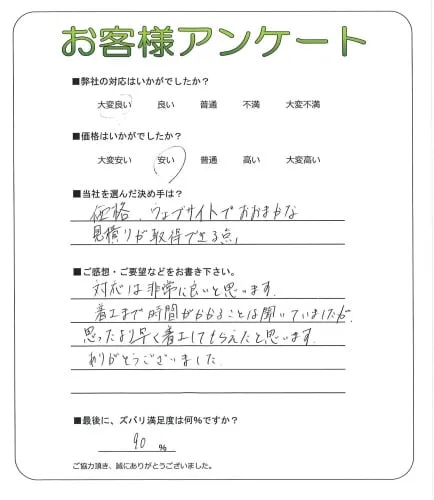 お客様アンケート
■弊社の対応はいかがでしたか？
大変良い 良い 普通 不満 大変不満
■価格はいかがでしたか？
大変安い 安い 普通 高い 大変高い
■当社を選んだ決め手は？
価格、ウェブサイトでおおまかな
見積りが取得できる点。
■ご感想・ご要望などをお書き下さい。
対応は非常に良いと思います。
着工まで時間がかかることは聞いていましたが、
思ったより早く着工してもらえたと思います。
ありがとうございました。
■最後に、ズバリ満足度は何%ですか？
90 %
ご協力頂き、誠にありがとうございました。